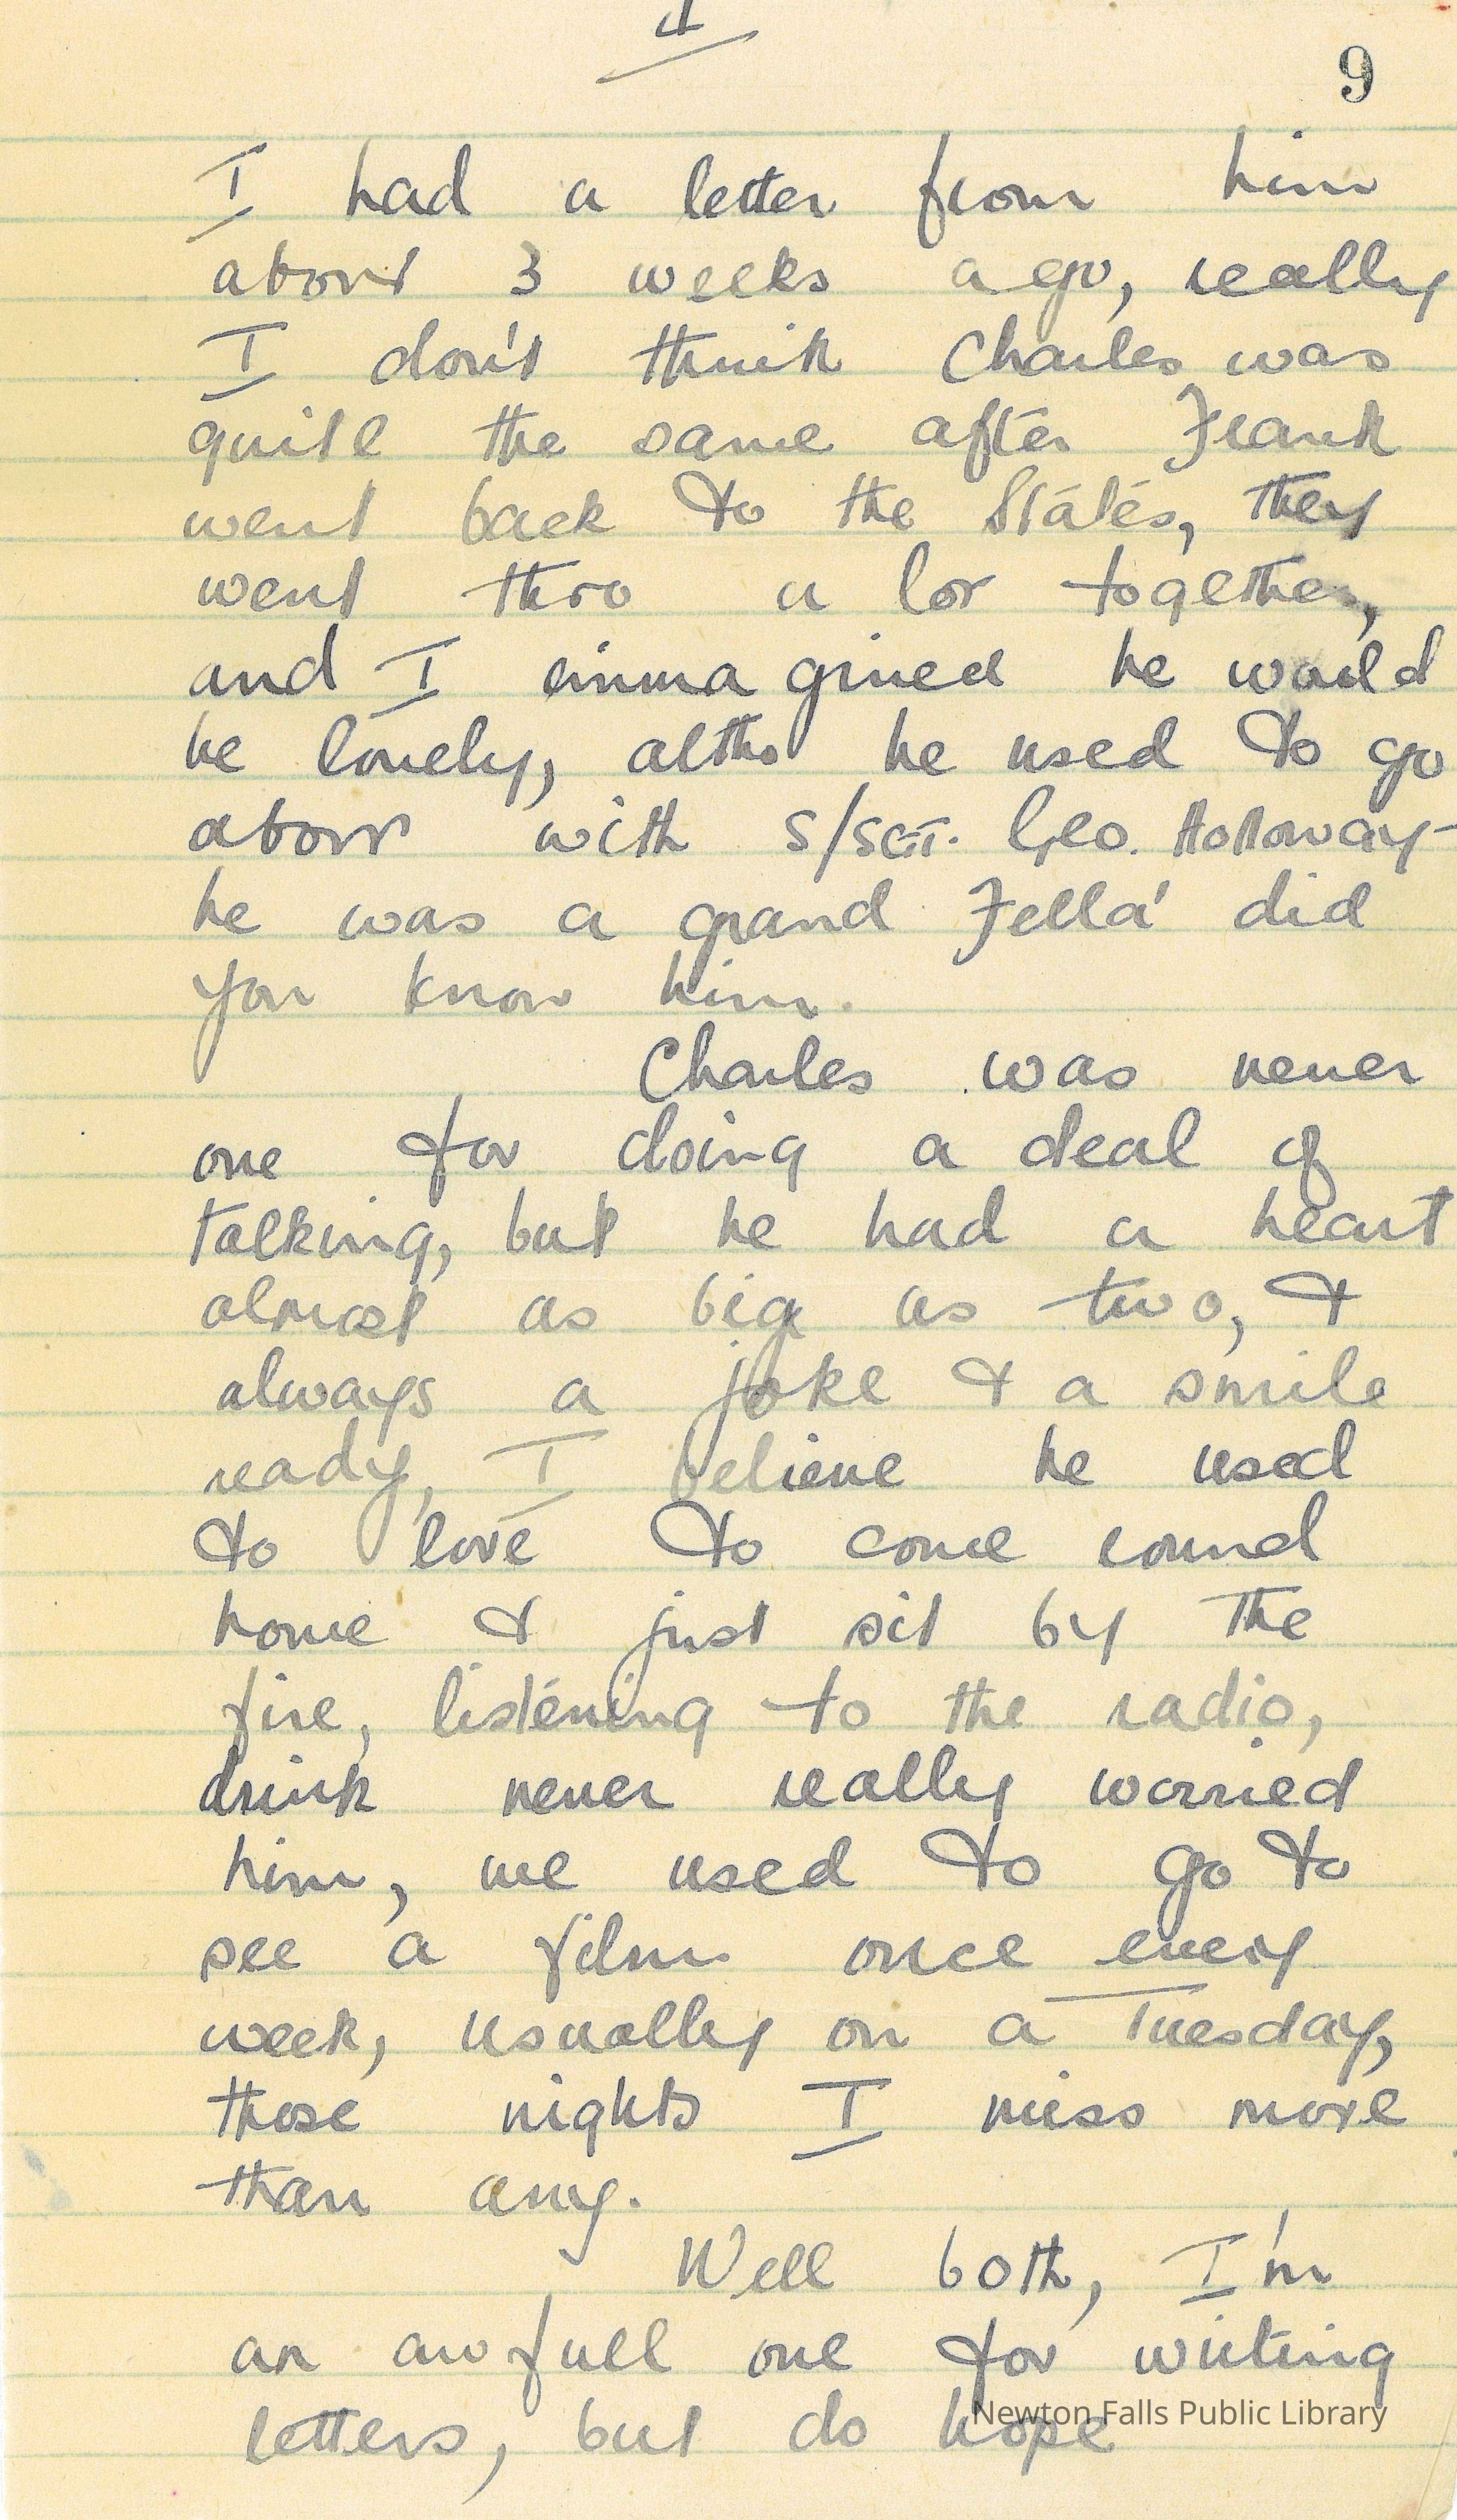 4
9
I had a letter from him
about 3 weeks ago, really
I don't think Charles was
quite the same after Frank
went back to the States, they
went thro a lot together,
and I immagined he would
be lonely, altho he used to go
about with S/SGT. Geo. Holloway-
he was a grand Fella' did
you know him.
Charles was never
one for doing a deal of
talking, but he had a heart
almost as big as two, &
always a joke & a smile
ready, I believe he used
to love to come round
home & just sit by the
fire, listening to the radio,
drink never really worried
him, we used to go to
see a film once every
week, usually on a Tuesday,
those nights I miss more
than any.
Well both, I'm
an awfull one for writing
letters, but do hope
Newton Falls Public Library